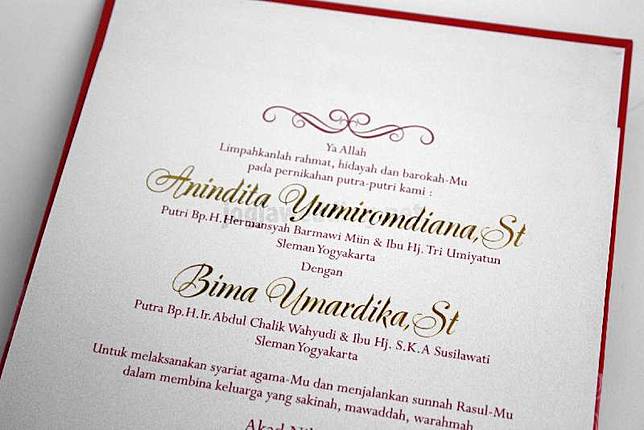 Ya Allah
Limpahkanlah rahmat, hidayah dan barokah-Mu
pada pernikahan putra-putri kami :
Anindita Yumiromdiana,St
Putri Bp.H.Hermansyah Barmawi Miin & Ibu Hj. Tri Umiyatun
Sleman Yogyakarta
Dengan
Bima Umardika,St
Putra Bp.H.Ir.Abdul Chalik Wahyudi & Ibu Hj. S.K.A Susilawati
Sleman Yogyakarta
Untuk melaksanakan syariat agama-Mu dan menjalankan sunnah Rasul-Mu
dalam membina keluarga yang sakinah, mawaddah, warahmah
Akad